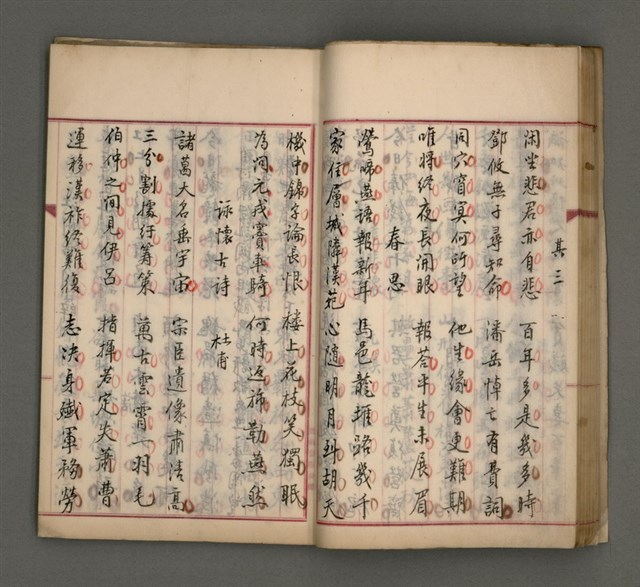 其三
閑坐悲君亦自悲 百年多是幾多時
鄧攸無子尋知命 潘岳悼亡有費詞
同穴窅冥何所望 他生緣會更難期
唯將終夜長開眼 報答平生未展眉
春思
鶯啼燕語報新年 馬邑龍堆路幾千
家住層城隣漢苑 心隨明月到胡天
機中錦字論長恨 樓上花枝笑獨眠
為問元戎竇車騎 何時返旆勒燕然
詠懷古詩 杜甫
諸葛大名垂宇宙 宗臣遺像肅清高
三分割據紆籌策 萬古雲霄一羽毛
伯仲之間見伊呂 指揮若定失蕭曹
運移漢祚終難復 志決身殲軍務勞